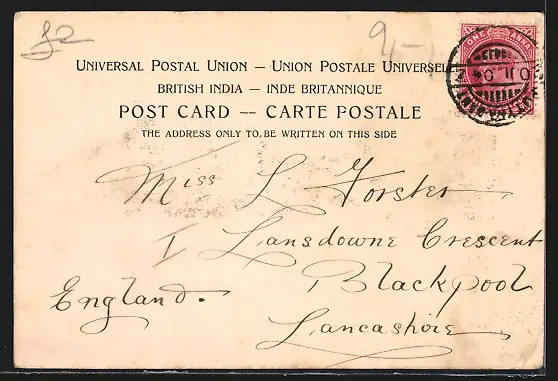 £2
9/-
ONE ANNA
UNIVERSAL POSTAL UNION — UNION POSTALE UNIVERSEL
BRITISH INDIA — INDE BRITANNIQUE
POST CARD — CARTE POSTALE
THE ADDRESS ONLY TO BE WRITTEN ON THIS SIDE
Miss L Forster
1 Lansdowne Crescent
Blackpool
England.
Lancashire